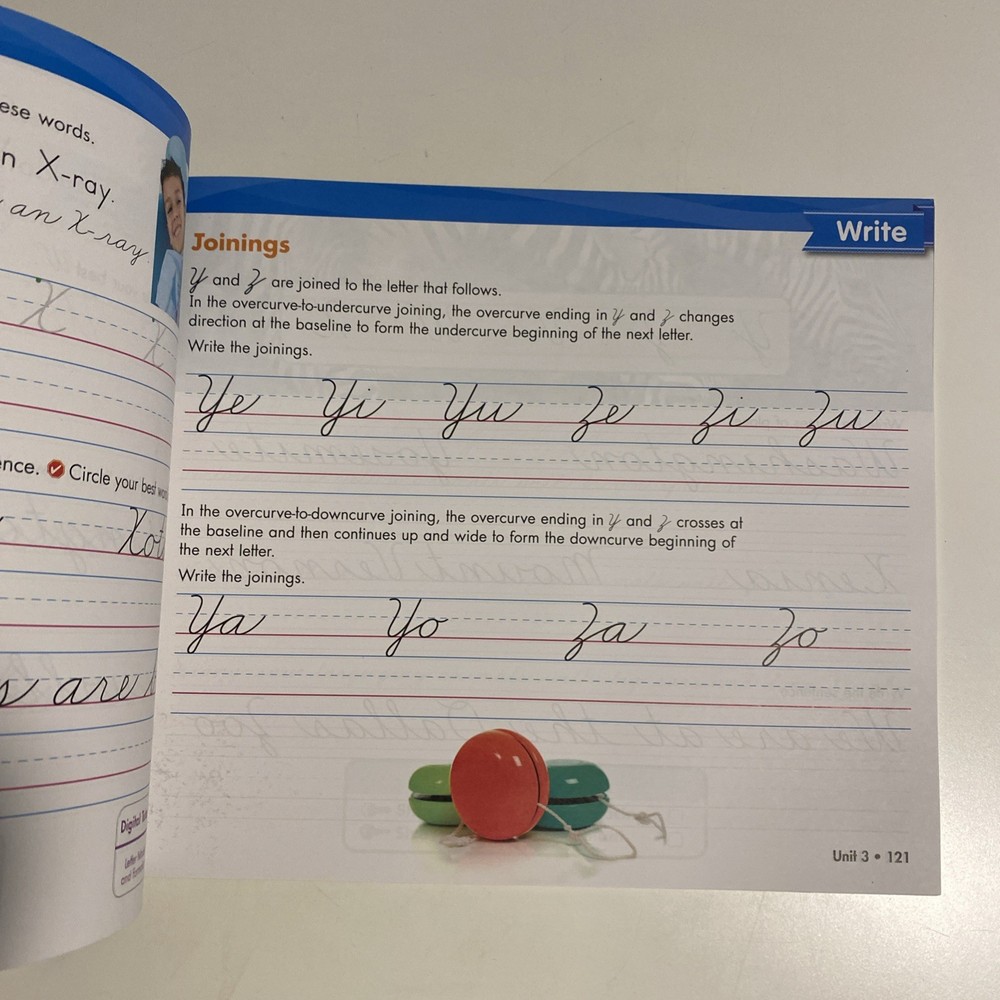 ese words.
n X-ray.
an X-ray.
X
X
ence. Circle your best
Xot
are
Digital
Write
Joinings
Y and Z are joined to the letter that follows.
In the overcurve-to-undercurve joining, the overcurve ending in Y and Z changes
direction at the baseline to form the undercurve beginning of the next letter.
Write the joinings.
Ye Yi Yu Ze Zi Zu
In the overcurve-to-downcurve joining, the overcurve ending in Y and Z crosses at
the baseline and then continues up and wide to form the downcurve beginning of
the next letter.
Write the joinings.
Ya Yo Za Zo
Unit 3 • 121